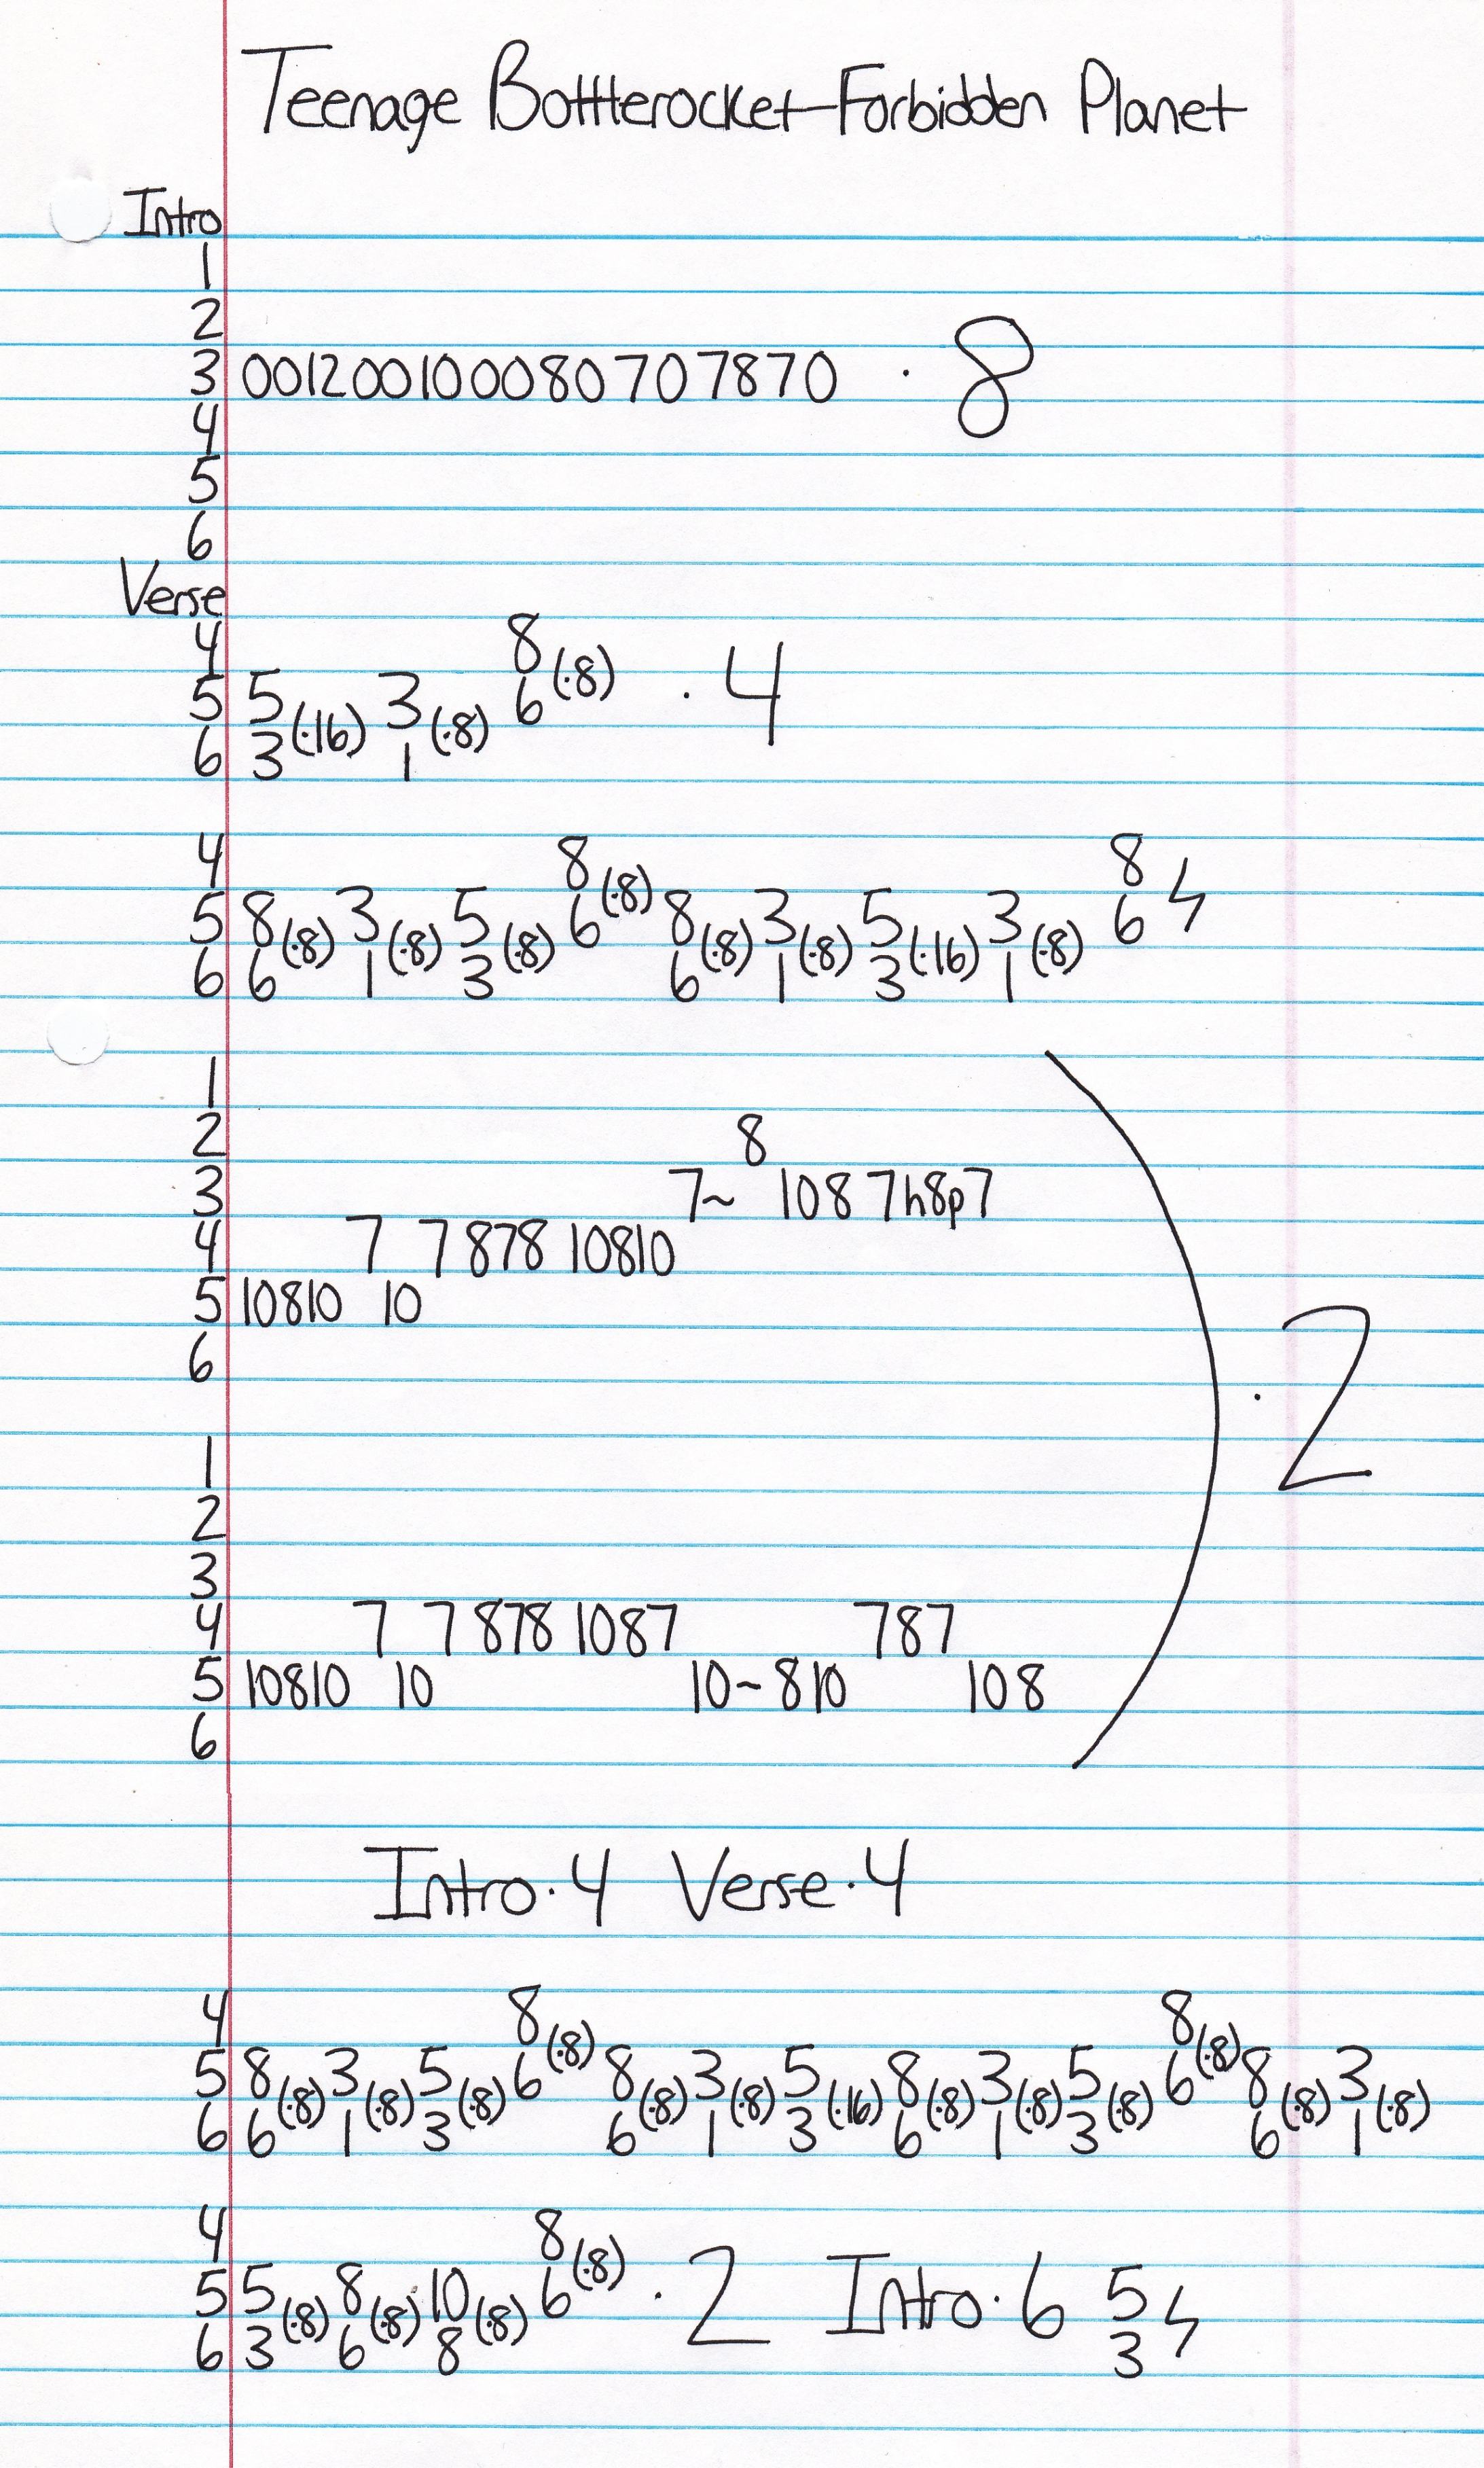 Teenage Bottlerocket-Forbidden Planet
Intro
1
2
3 001200100080707870 · 8
4
5
6
Verse
4 8
5 5 3 6 (·8) · 4
6 3 (·16) 1 (·8)
4 8 8
5 8 3 5 6 (·8) 8 3 5 3 6 ϟ
6 6 (·8) 1 (·8) 3 (·8) 6 (·8) 1 (·8) 3 (·16) 1 (·8)
1
2 8
3 7~ 108 7h8p7
4 7 7 878 10810
5 10810 10
6
· 2
1
2
3
4 7 7 878 1087 787
5 10810 10 10~810 108
6
Intro·4 Verse·4
4 8 8
5 8 3 5 6 (·8) 8 3 5 8 3 5 6 (·8) 8 3
6 6 (·8) 1 (·8) 3 (·8) 6 (·8) 1 (·8) 3 (·16) 6 (·8) 1 (·8) 3 (·8) 6 (·8) 1 (·8)
4 8
5 5 8 10 6 (·8) · 2 Intro·6 5 ϟ
6 3 (·8) 6 (·8) 8 (·8) 3